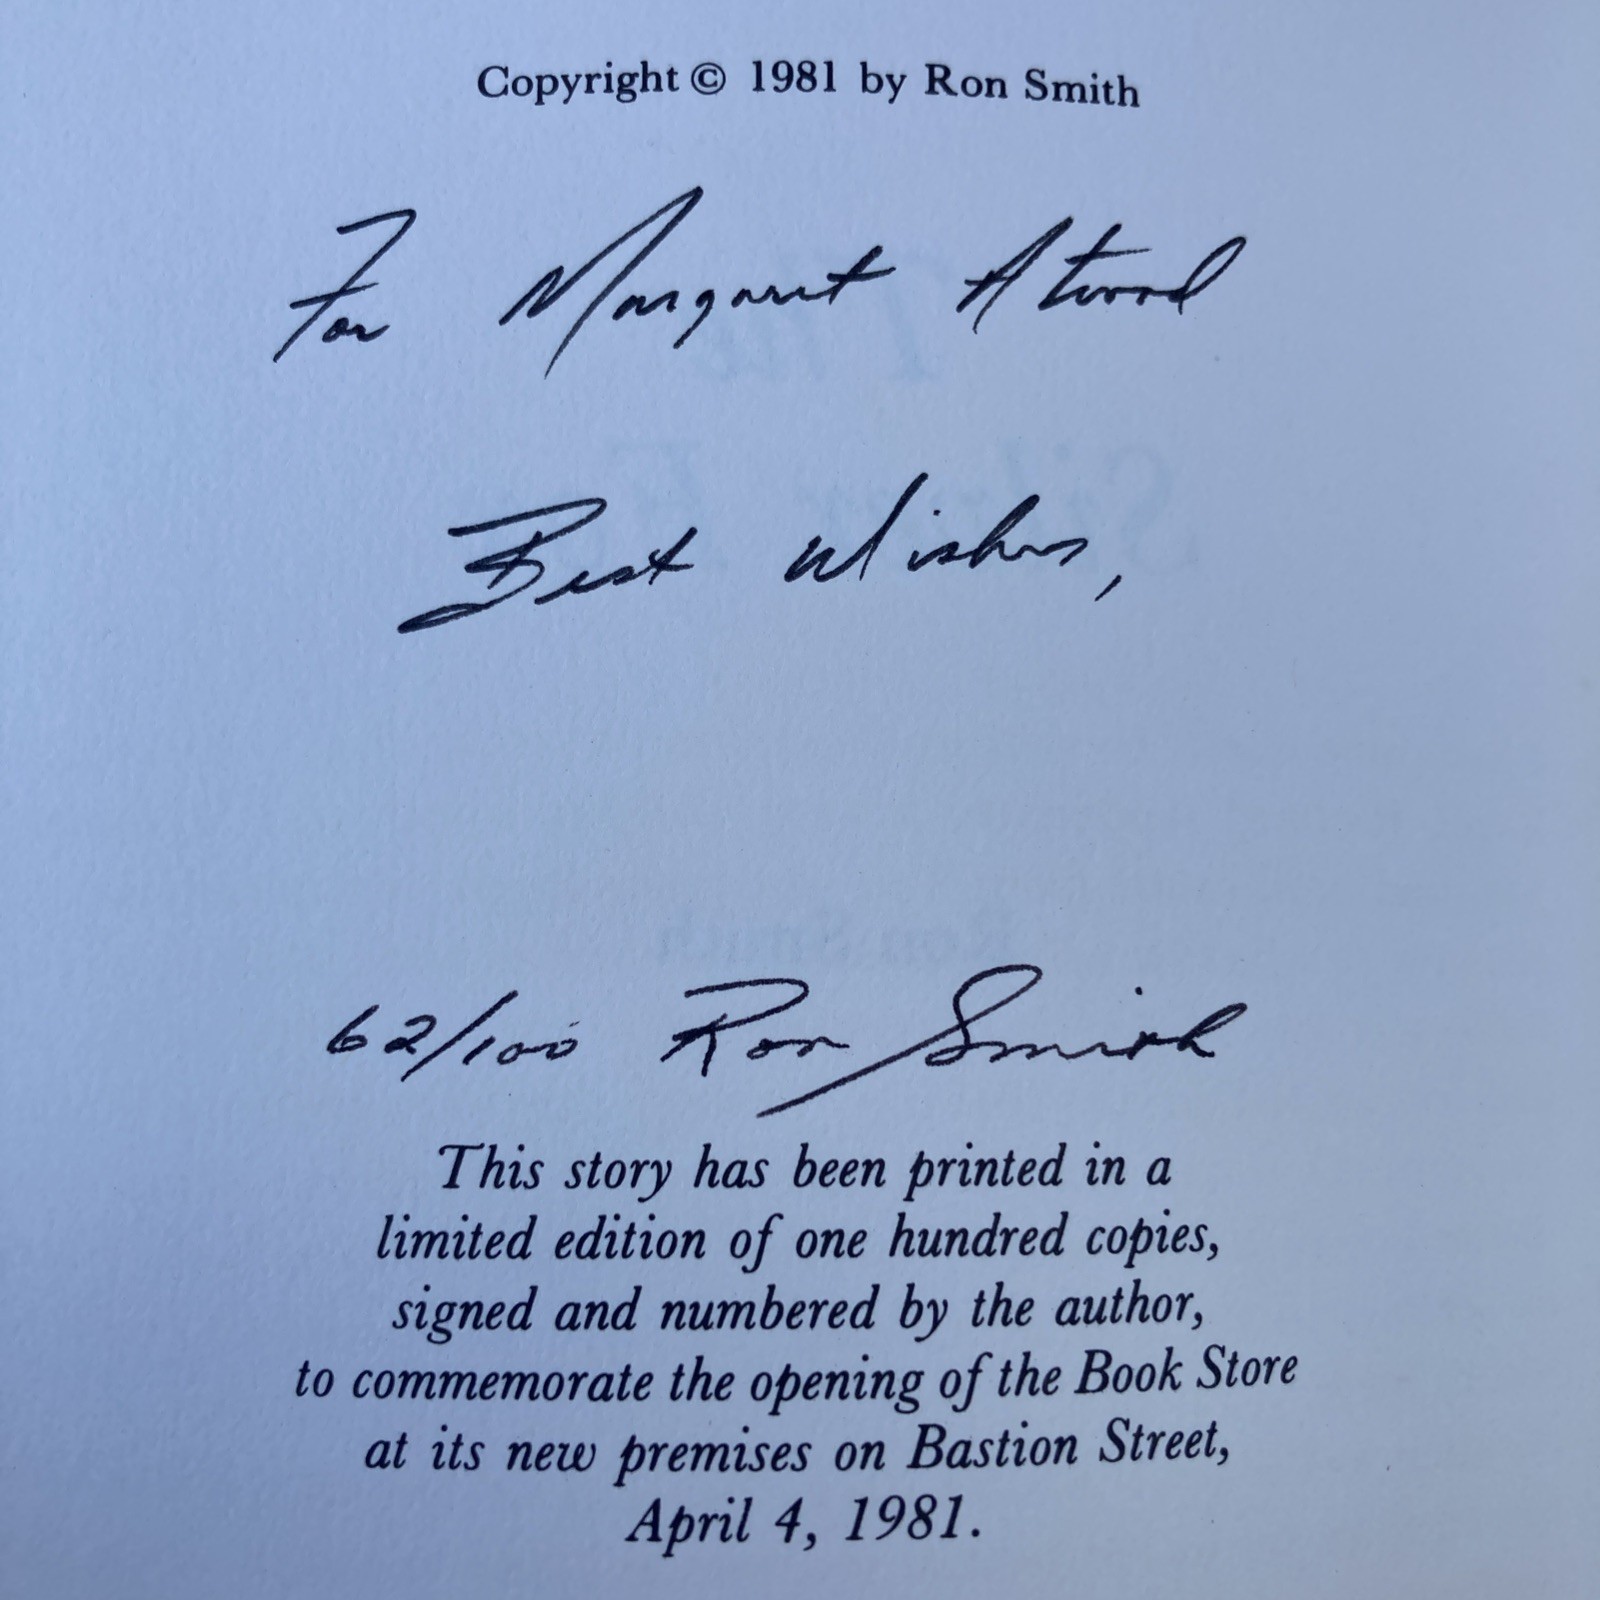 Copyright © 1981 by Ron Smith
For Margaret Atwood
Best Wishes,
62/100 Ron Smith
This story has been printed in a
limited edition of one hundred copies,
signed and numbered by the author,
to commemorate the opening of the Book Store
at its new premises on Bastion Street,
April 4, 1981.